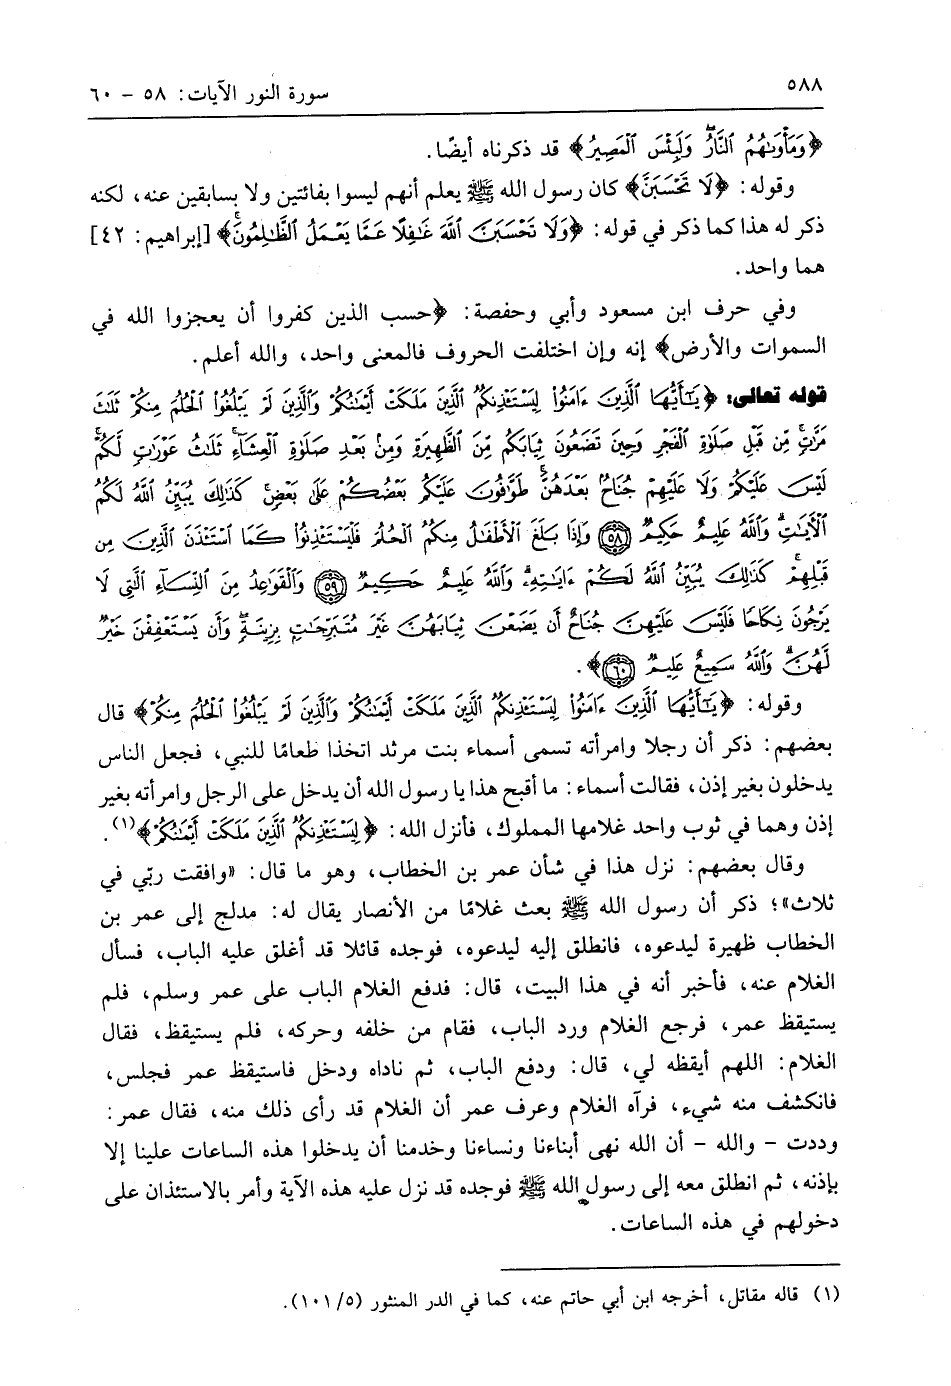 ٥٨٨
سورة النور الآيات: ٥٨ - ٦٠
﴿وَمَأْوَىٰهُمُ ٱلنَّارُ وَلَبِئْسَ ٱلْمَصِيرُ﴾ قد ذكرناه أيضًا.
وقوله: ﴿لَا تَحْسَبَنَّ﴾ كان رسول الله ﷺ يعلم أنهم ليسوا بفائتين ولا بسابقين عنه، لكنه
ذكر له هذا كما ذكر في قوله: ﴿وَلَا تَحْسَبَنَّ ٱللَّهَ غَٰفِلًا عَمَّا يَعْمَلُ ٱلظَّٰلِمُونَ﴾ [إبراهيم: ٤٢]
هما واحد.
وفي حرف ابن مسعود وأبي وحفصة: ﴿حسب الذين كفروا أن يعجزوا الله في
السموات والأرض﴾ إنه وإن اختلفت الحروف فالمعنى واحد، والله أعلم.
قوله تعالى: ﴿يَٰٓأَيُّهَا ٱلَّذِينَ ءَامَنُوا۟ لِيَسْتَـْٔذِنكُمُ ٱلَّذِينَ مَلَكَتْ أَيْمَٰنُكُمْ وَٱلَّذِينَ لَمْ يَبْلُغُوا۟ ٱلْحُلُمَ مِنكُمْ ثَلَٰثَ
مَرَّٰتٍ مِّن قَبْلِ صَلَوٰةِ ٱلْفَجْرِ وَحِينَ تَضَعُونَ ثِيَابَكُم مِّنَ ٱلظَّهِيرَةِ وَمِنۢ بَعْدِ صَلَوٰةِ ٱلْعِشَآءِ ثَلَٰثُ عَوْرَٰتٍ لَّكُمْ
لَيْسَ عَلَيْكُمْ وَلَا عَلَيْهِمْ جُنَاحٌۢ بَعْدَهُنَّ طَوَّٰفُونَ عَلَيْكُم بَعْضُكُمْ عَلَىٰ بَعْضٍ كَذَٰلِكَ يُبَيِّنُ ٱللَّهُ لَكُمُ
ٱلْءَايَٰتِ وَٱللَّهُ عَلِيمٌ حَكِيمٌ ﴿٥٨﴾ وَإِذَا بَلَغَ ٱلْأَطْفَٰلُ مِنكُمُ ٱلْحُلُمَ فَلْيَسْتَـْٔذِنُوا۟ كَمَا ٱسْتَـْٔذَنَ ٱلَّذِينَ مِن
قَبْلِهِمْ كَذَٰلِكَ يُبَيِّنُ ٱللَّهُ لَكُمْ ءَايَٰتِهِۦ وَٱللَّهُ عَلِيمٌ حَكِيمٌ ﴿٥٩﴾ وَٱلْقَوَٰعِدُ مِنَ ٱلنِّسَآءِ ٱلَّٰتِى لَا
يَرْجُونَ نِكَاحًا فَلَيْسَ عَلَيْهِنَّ جُنَاحٌ أَن يَضَعْنَ ثِيَابَهُنَّ غَيْرَ مُتَبَرِّجَٰتٍۭ بِزِينَةٍ وَأَن يَسْتَعْفِفْنَ خَيْرٌ
لَّهُنَّ وَٱللَّهُ سَمِيعٌ عَلِيمٌ ﴿٦٠﴾﴾.
وقوله: ﴿يَٰٓأَيُّهَا ٱلَّذِينَ ءَامَنُوا۟ لِيَسْتَـْٔذِنكُمُ ٱلَّذِينَ مَلَكَتْ أَيْمَٰنُكُمْ وَٱلَّذِينَ لَمْ يَبْلُغُوا۟ ٱلْحُلُمَ مِنكُمْ﴾ قال
بعضهم: ذكر أن رجلا وامرأته تسمى أسماء بنت مرثد اتخذا طعامًا للنبي، فجعل الناس
يدخلون بغير إذن، فقالت أسماء: ما أقبح هذا يا رسول الله أن يدخل على الرجل وامرأته بغير
إذن وهما في ثوب واحد غلامها المملوك، فأنزل الله: ﴿لِيَسْتَـْٔذِنكُمُ ٱلَّذِينَ مَلَكَتْ أَيْمَٰنُكُمْ﴾(١).
وقال بعضهم: نزل هذا في شأن عمر بن الخطاب، وهو ما قال: «وافقت ربّي في
ثلاث»؛ ذكر أن رسول الله ﷺ بعث غلامًا من الأنصار يقال له: مدلج إلى عمر بن
الخطاب ظهيرة ليدعوه، فانطلق إليه ليدعوه، فوجده قائلا قد أغلق عليه الباب، فسأل
الغلام عنه، فأخبر أنه في هذا البيت، قال: فدفع الغلام الباب على عمر وسلم، فلم
يستيقظ عمر، فرجع الغلام ورد الباب، فقام من خلفه وحركه، فلم يستيقظ، فقال
الغلام: اللهم أيقظه لي، قال: ودفع الباب، ثم ناداه ودخل فاستيقظ عمر فجلس،
فانكشف منه شيء، فرآه الغلام وعرف عمر أن الغلام قد رأى ذلك منه، فقال عمر:
وددت - والله - أن الله نهى أبناءنا ونساءنا وخدمنا أن يدخلوا هذه الساعات علينا إلا
بإذنه، ثم انطلق معه إلى رسول الله ﷺ فوجده قد نزل عليه هذه الآية وأمر بالاستئذان على
دخولهم في هذه الساعات.
(١) قاله مقاتل، أخرجه ابن أبي حاتم عنه، كما في الدر المنثور (٥/ ١٠١).